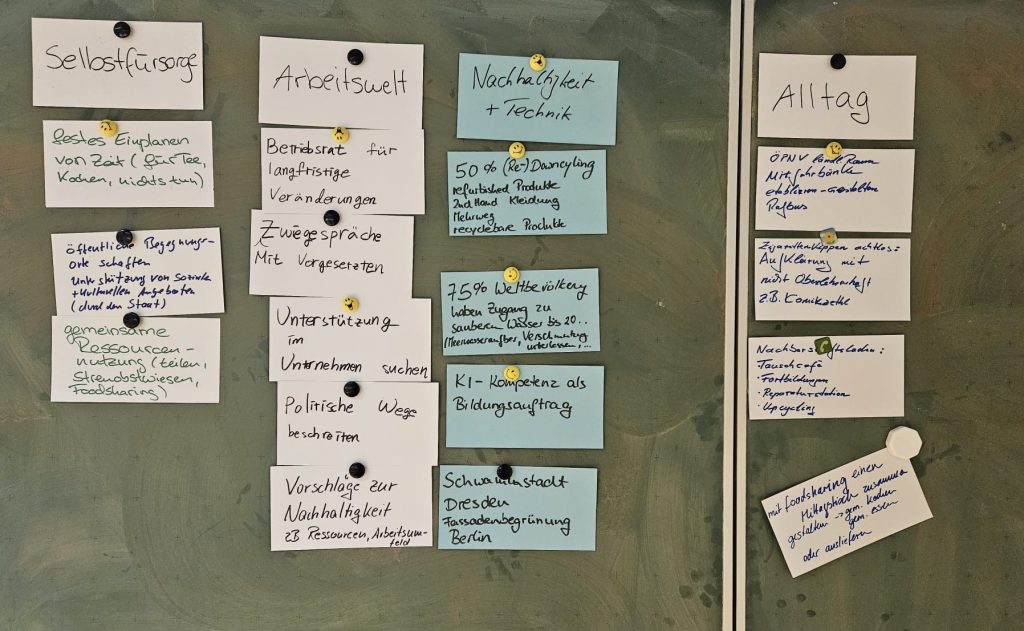 Selbstfürsorge
festes Einplanen
von Zeit (für Tee,
Kochen, nichts tun)
öffentliche Begegnungs-
orte schaffen
Unterstützung von Sozialen
+ kulturellen Angeboten
(durch den Staat)
gemeinsame
Ressourcen-
nutzung (teilen,
Streuobstwiesen,
Foodsharing)
Arbeitswelt
Betriebsrat für
langfristige
Veränderungen
Zwiegespräche
Mit Vorgesetzten
Unterstützung
im
Unternehmen suchen
Politische Wege
beschreiten
Vorschläge zur
Nachhaltigkeit
zB Ressourcen, Arbeitsum-
feld
Nachhaltigkeit
+ Technik
50% (Re-) Downcyling
refurbished Produkte
2nd Hand Kleidung
Mehrweg
recyclebare Produkte
75% Weltbevölkerung
haben Zugang zu
sauberem Wasser bis 20..
(Meerwasseraufber, Verschmutzung
unterlassen, ...
KI-Kompetenz als
Bildungsauftrag
Schwammstadt
Dresden
Fassadenbegrünung
Berlin
Alltag
ÖPNV ländl. Raum
Mitfahrbänke
etablieren-gestalten
Rufbus
achtlos:
Aufklärung mit
nicht Oberlehrerhaft
z.B. Komikecke
Tauschcafé
· Fortbildungen
· Reparaturstation
· Upcycling
mit foodsharing einen
Mittagstisch zusammen
gestalten -> gem. kochen
gem. essen
oder ausliefern